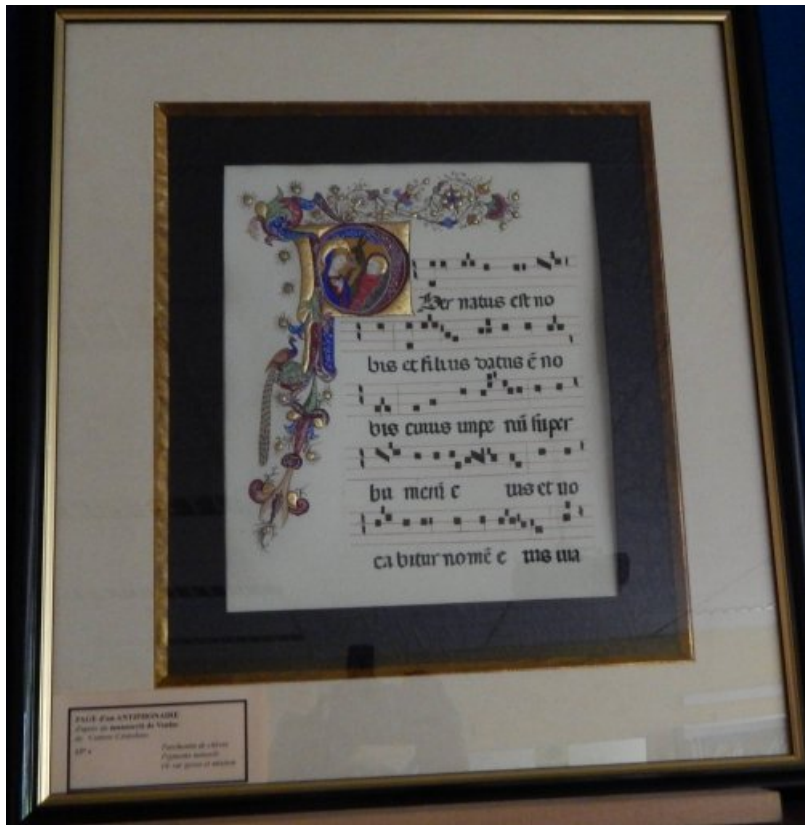 Per natus est no
bis et filius datus ē no
bis cuius impe riū super
hu merū e ius et uo
ca bitur nomē e ius ma
PAGE d'un ANTIPHONAIRE
d'après un manuscrit de Venise
de Cristoforo
15e s
Parchemin de chèvre
Pigments naturels
Or sur gesso et